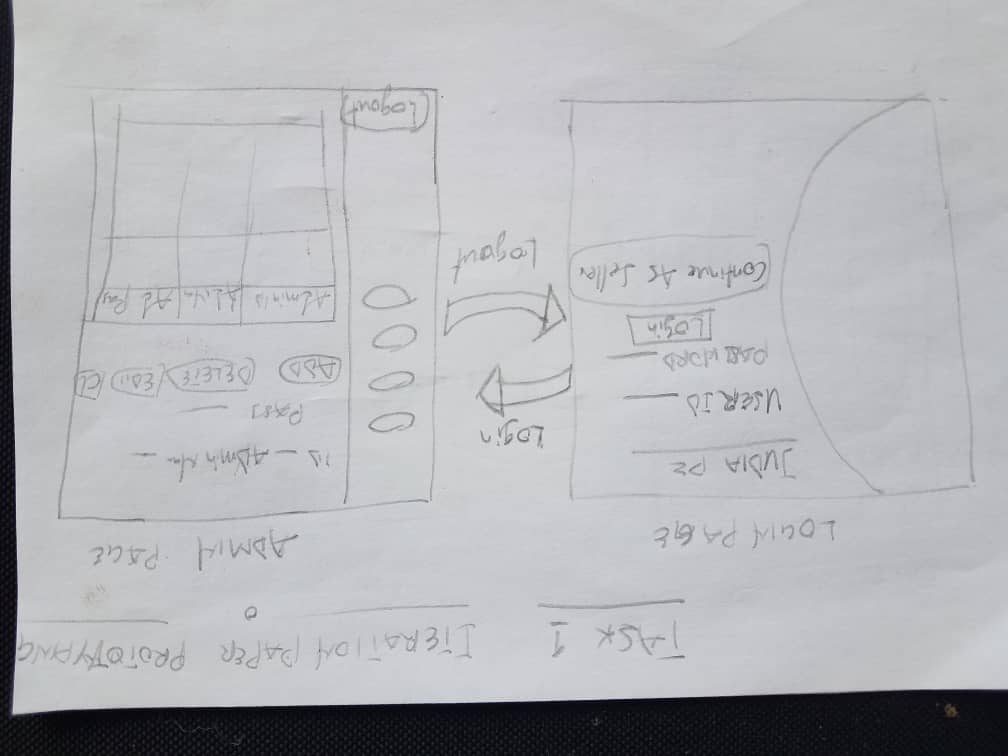 TASK 1 ITERATION PAPER PROTOTYPING
LOGIN PAGE
JUDIA PZ
USER ID
PASSWORD
Login
Continue As Seller
Login
Logout
ADMIN PAGE
ID Admin
PASS
ADD DELETE EDIT CL
Admin ID Ad Na Ad Pas
Logout